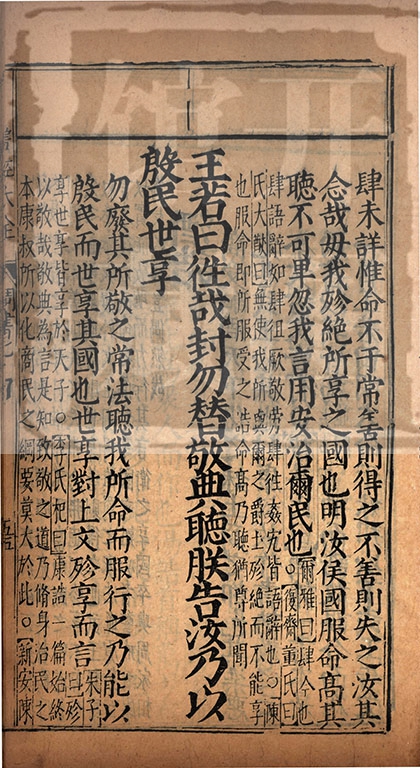 肆未詳惟命不于常善則得之不善則失之汝其
念哉毋我殄絕所享之國也明汝侯國服命高其
聽不可卑忽我言用安治爾民也○爾雅曰肆今也○復齋董氏曰
肆語辭如肆徂厥敬勞肆往姦宄皆語辭也○陳
氏大猷曰無使我所與爾之爵土殄絕而不能享
也服命即所服受之誥命高乃聽猶尊所聞
王若曰往哉封勿替敬典聽朕告汝乃以
殷民世享
勿廢其所敬之常法聽我所命而服行之乃能以
殷民而世享其國也世享對上文殄享而言朱子曰殄
享世享皆享於天子○李氏杞曰康誥一篇始終
以敬哉敬典為言是知致敬之道乃脩身治民之
本康叔所以化商民之綱要莫大於此○新安陳
書經大全